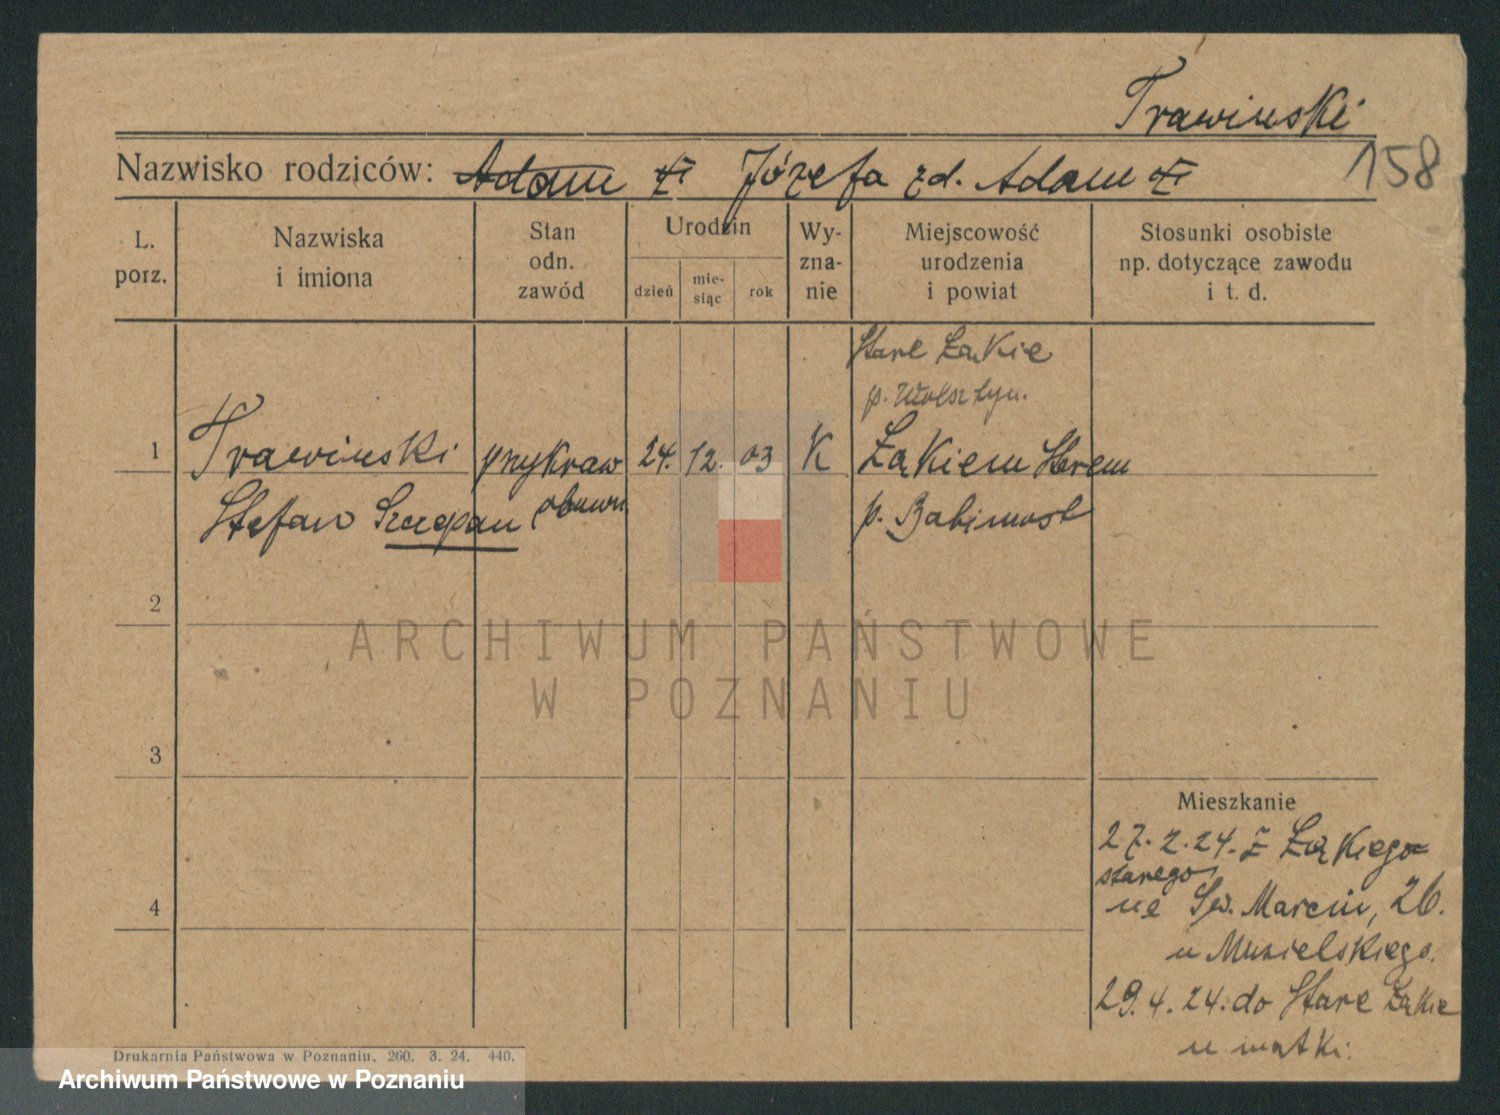 Trawinski
158
Nazwisko rodziców: Adam Józefa zd. Adam
L. porz.
Nazwiska i imiona
Stan odn. zawód
Urodzin
dzień
mie-siąc
rok
Wy-zna-nie
Miejscowość urodzenia i powiat
Stosunki osobiste np. dotyczące zawodu i t. d.
Stare Łąkie
p. Wolsztyn.
1 Trawinski przykraw 24. 12. 03 K Łąkiem Starem
Stefan Szczepan obuwn. p. Babimost
2
ARCHIWUM PAŃSTWOWE
W POZNANIU
3
Mieszkanie
27. 2. 24. z Łąkiego
starego
4
na Św. Marcin, 26.
u Musielskiego.
29. 4. 24. do Stare Łąkie
u matki.
Drukarnia Państwowa w Poznaniu, 260. 3. 24. 440.
Archiwum Państwowe w Poznaniu